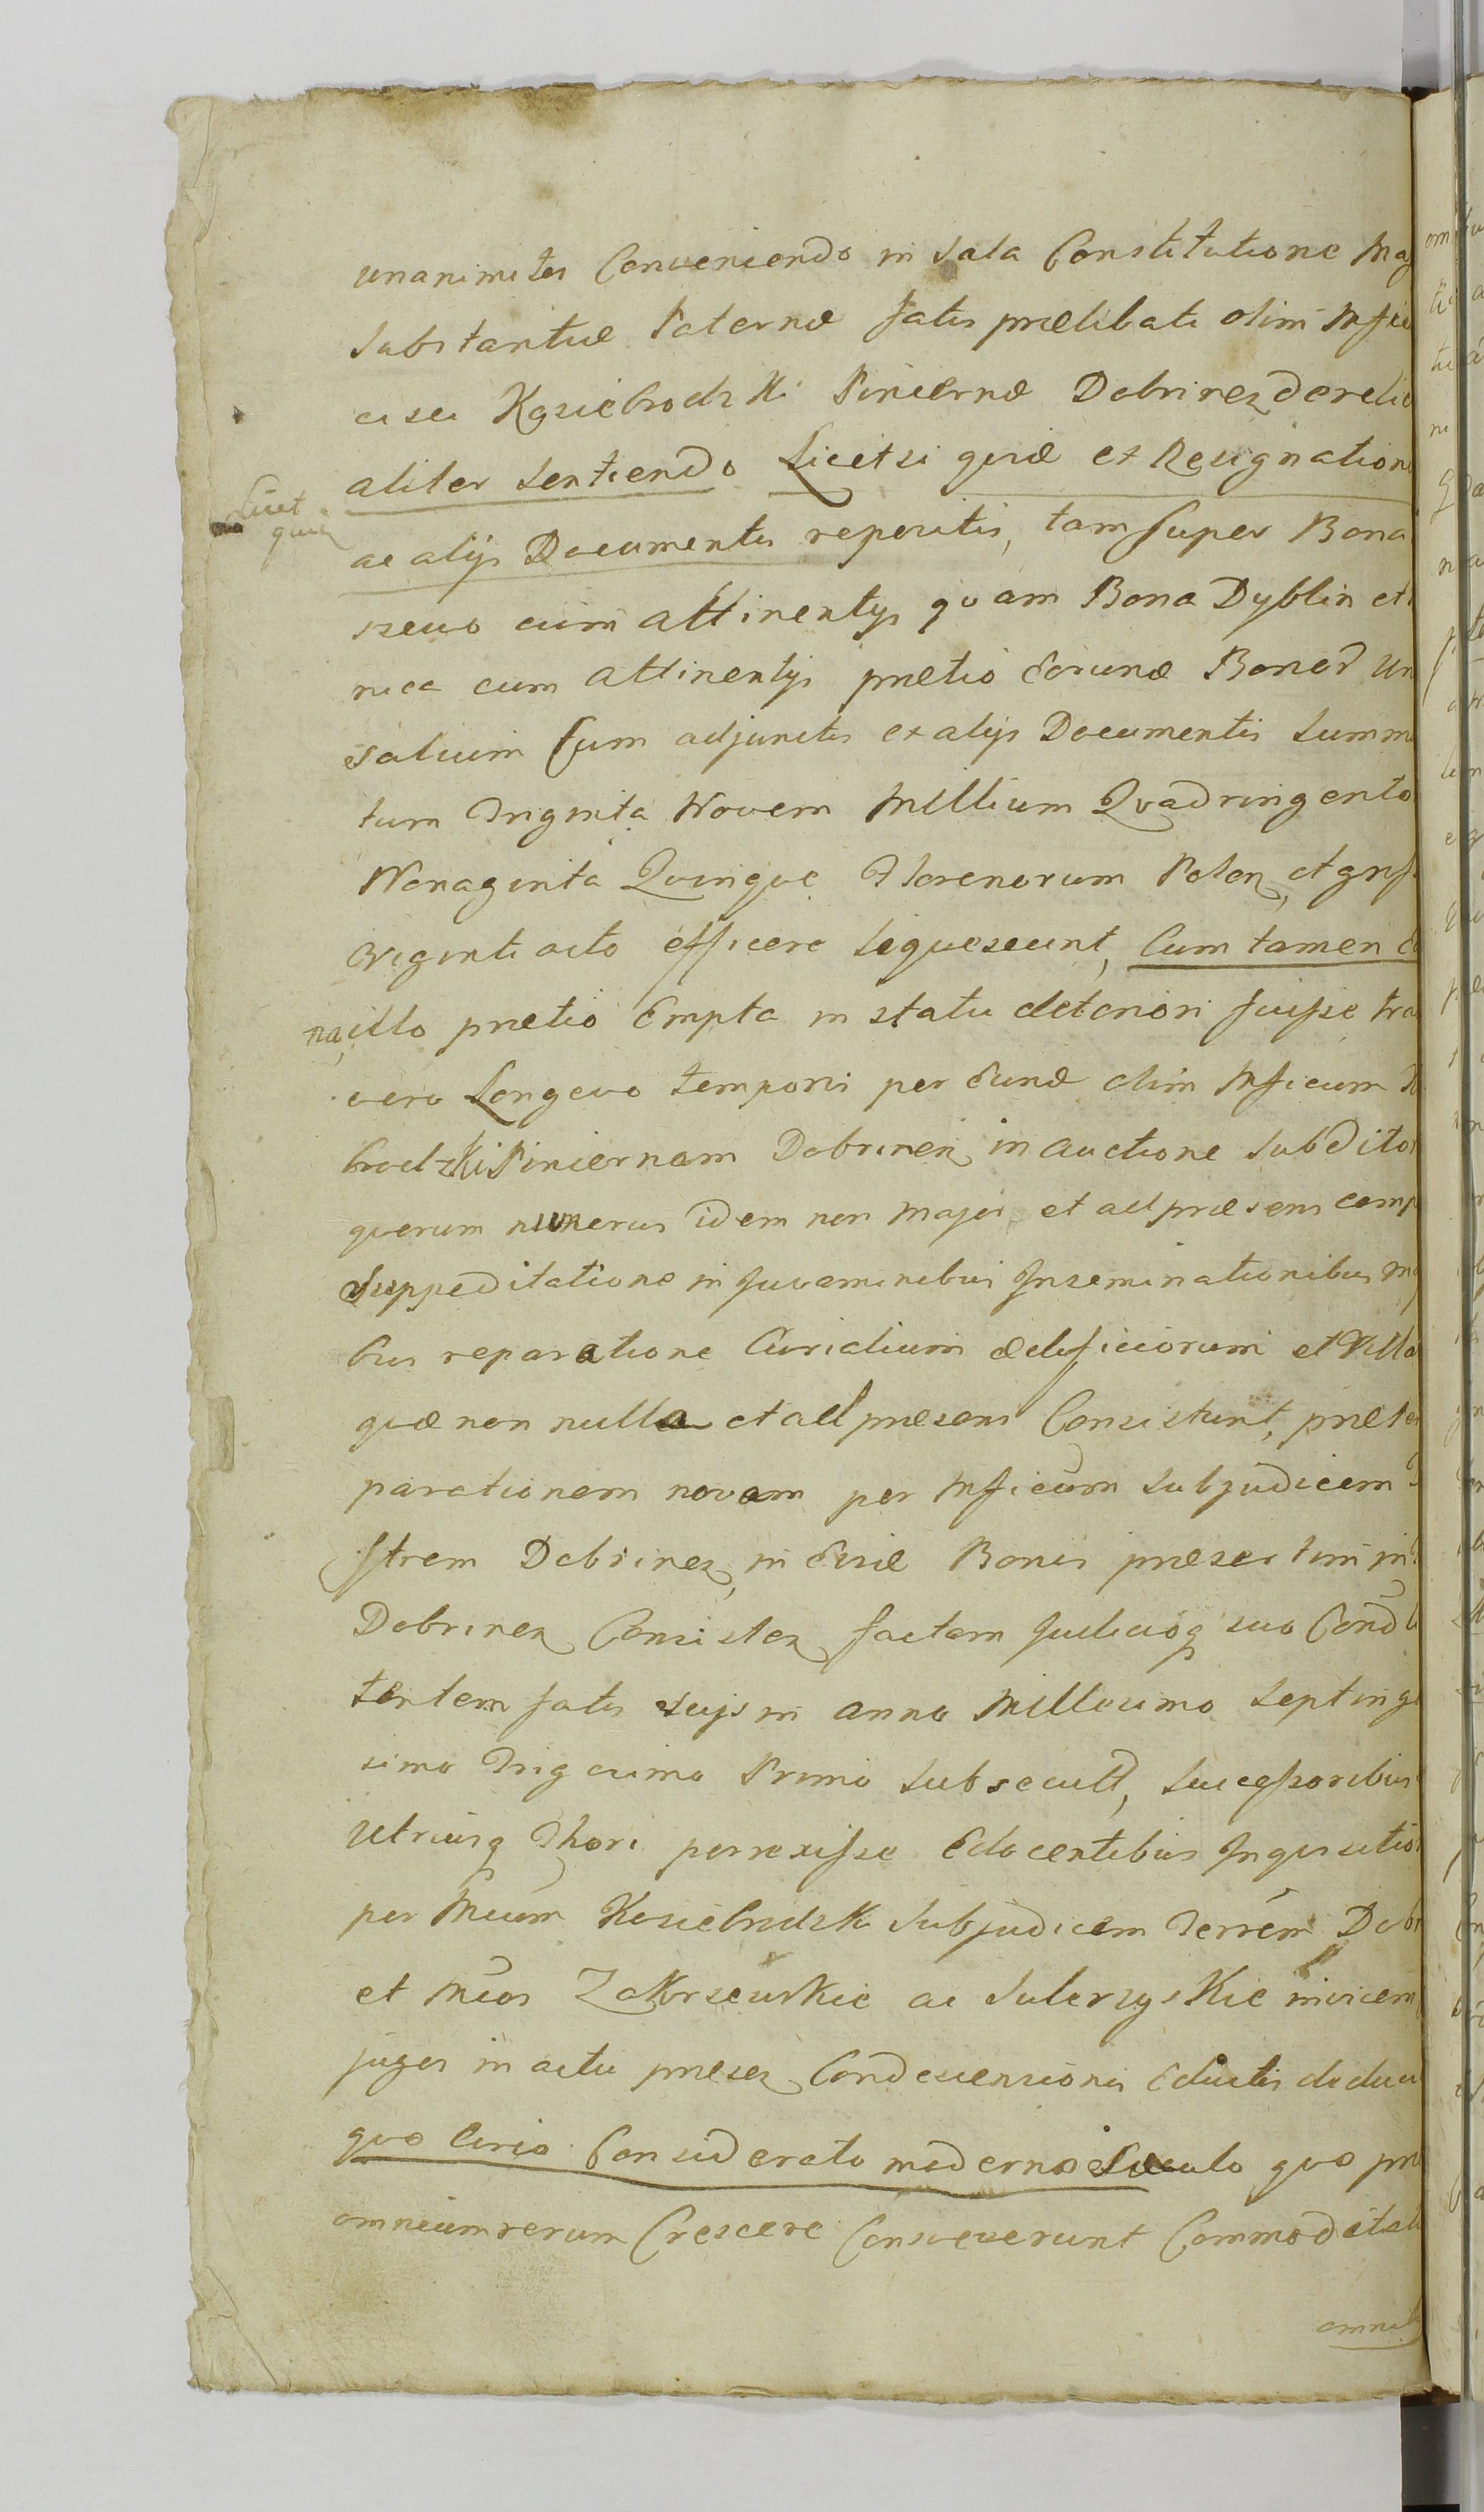 unanimiter Conveniendo in Sala Constitutione Mag
Substantiæ Paternæ fatis prælibati olim Mfici
Kosiebrodzki Pincernæ Dobrinen derelic
aliter Sentiendo Licet si quid ex Resignation
Licet
ac alijs Documentis repertis, tam super Bona
szewo cum attinentijs quam Bona Dyblin et
nica cum attinentijs prætio Bonor un
Cum adjunctis ex alijs Documentis Summ
tum Triginta Novem Millium Quadringento
Nonaginta Quinque Florenorum Polon, et
Viginti octo efficere, Cum tamen
na, illo prætio Empta in statu deteriori fuisse tra
vero Longevo temporis per olim Mficum
brodzki Pincernam Dobrinen in auctione Subdito
quorum numerus idem non major et ad præsens comp
Suppeditatione in Juvaminibus Inseminationibus
bus reparatione Curialium ædificiorum et Villa
quæ non nulla et ad præsens Consistunt, præter
parationem novam per Mficum Subjudicem
strem Dobrinen, in Bonis præsertim in
Dobrinen Consisten factam Judicioq suo Cond
tentem fatis suis in anno Millesimo Septinge
simo Trigesimo Primo Subsecutt, Successoribus
Utriusq Thori perrexisse Edocentibus Inquisitio
per Mcum Kosiebrodzki Subjudicem Terrem Dobr
et Mcos Zakrzewskie ac Sulerzyskie invicem
juges in actu præsen Condescensionis Eductis deduci
quo circa Considerato moderno Sæculo quo præ
omnium rerum Crescere Consueverunt Commoditat
omni